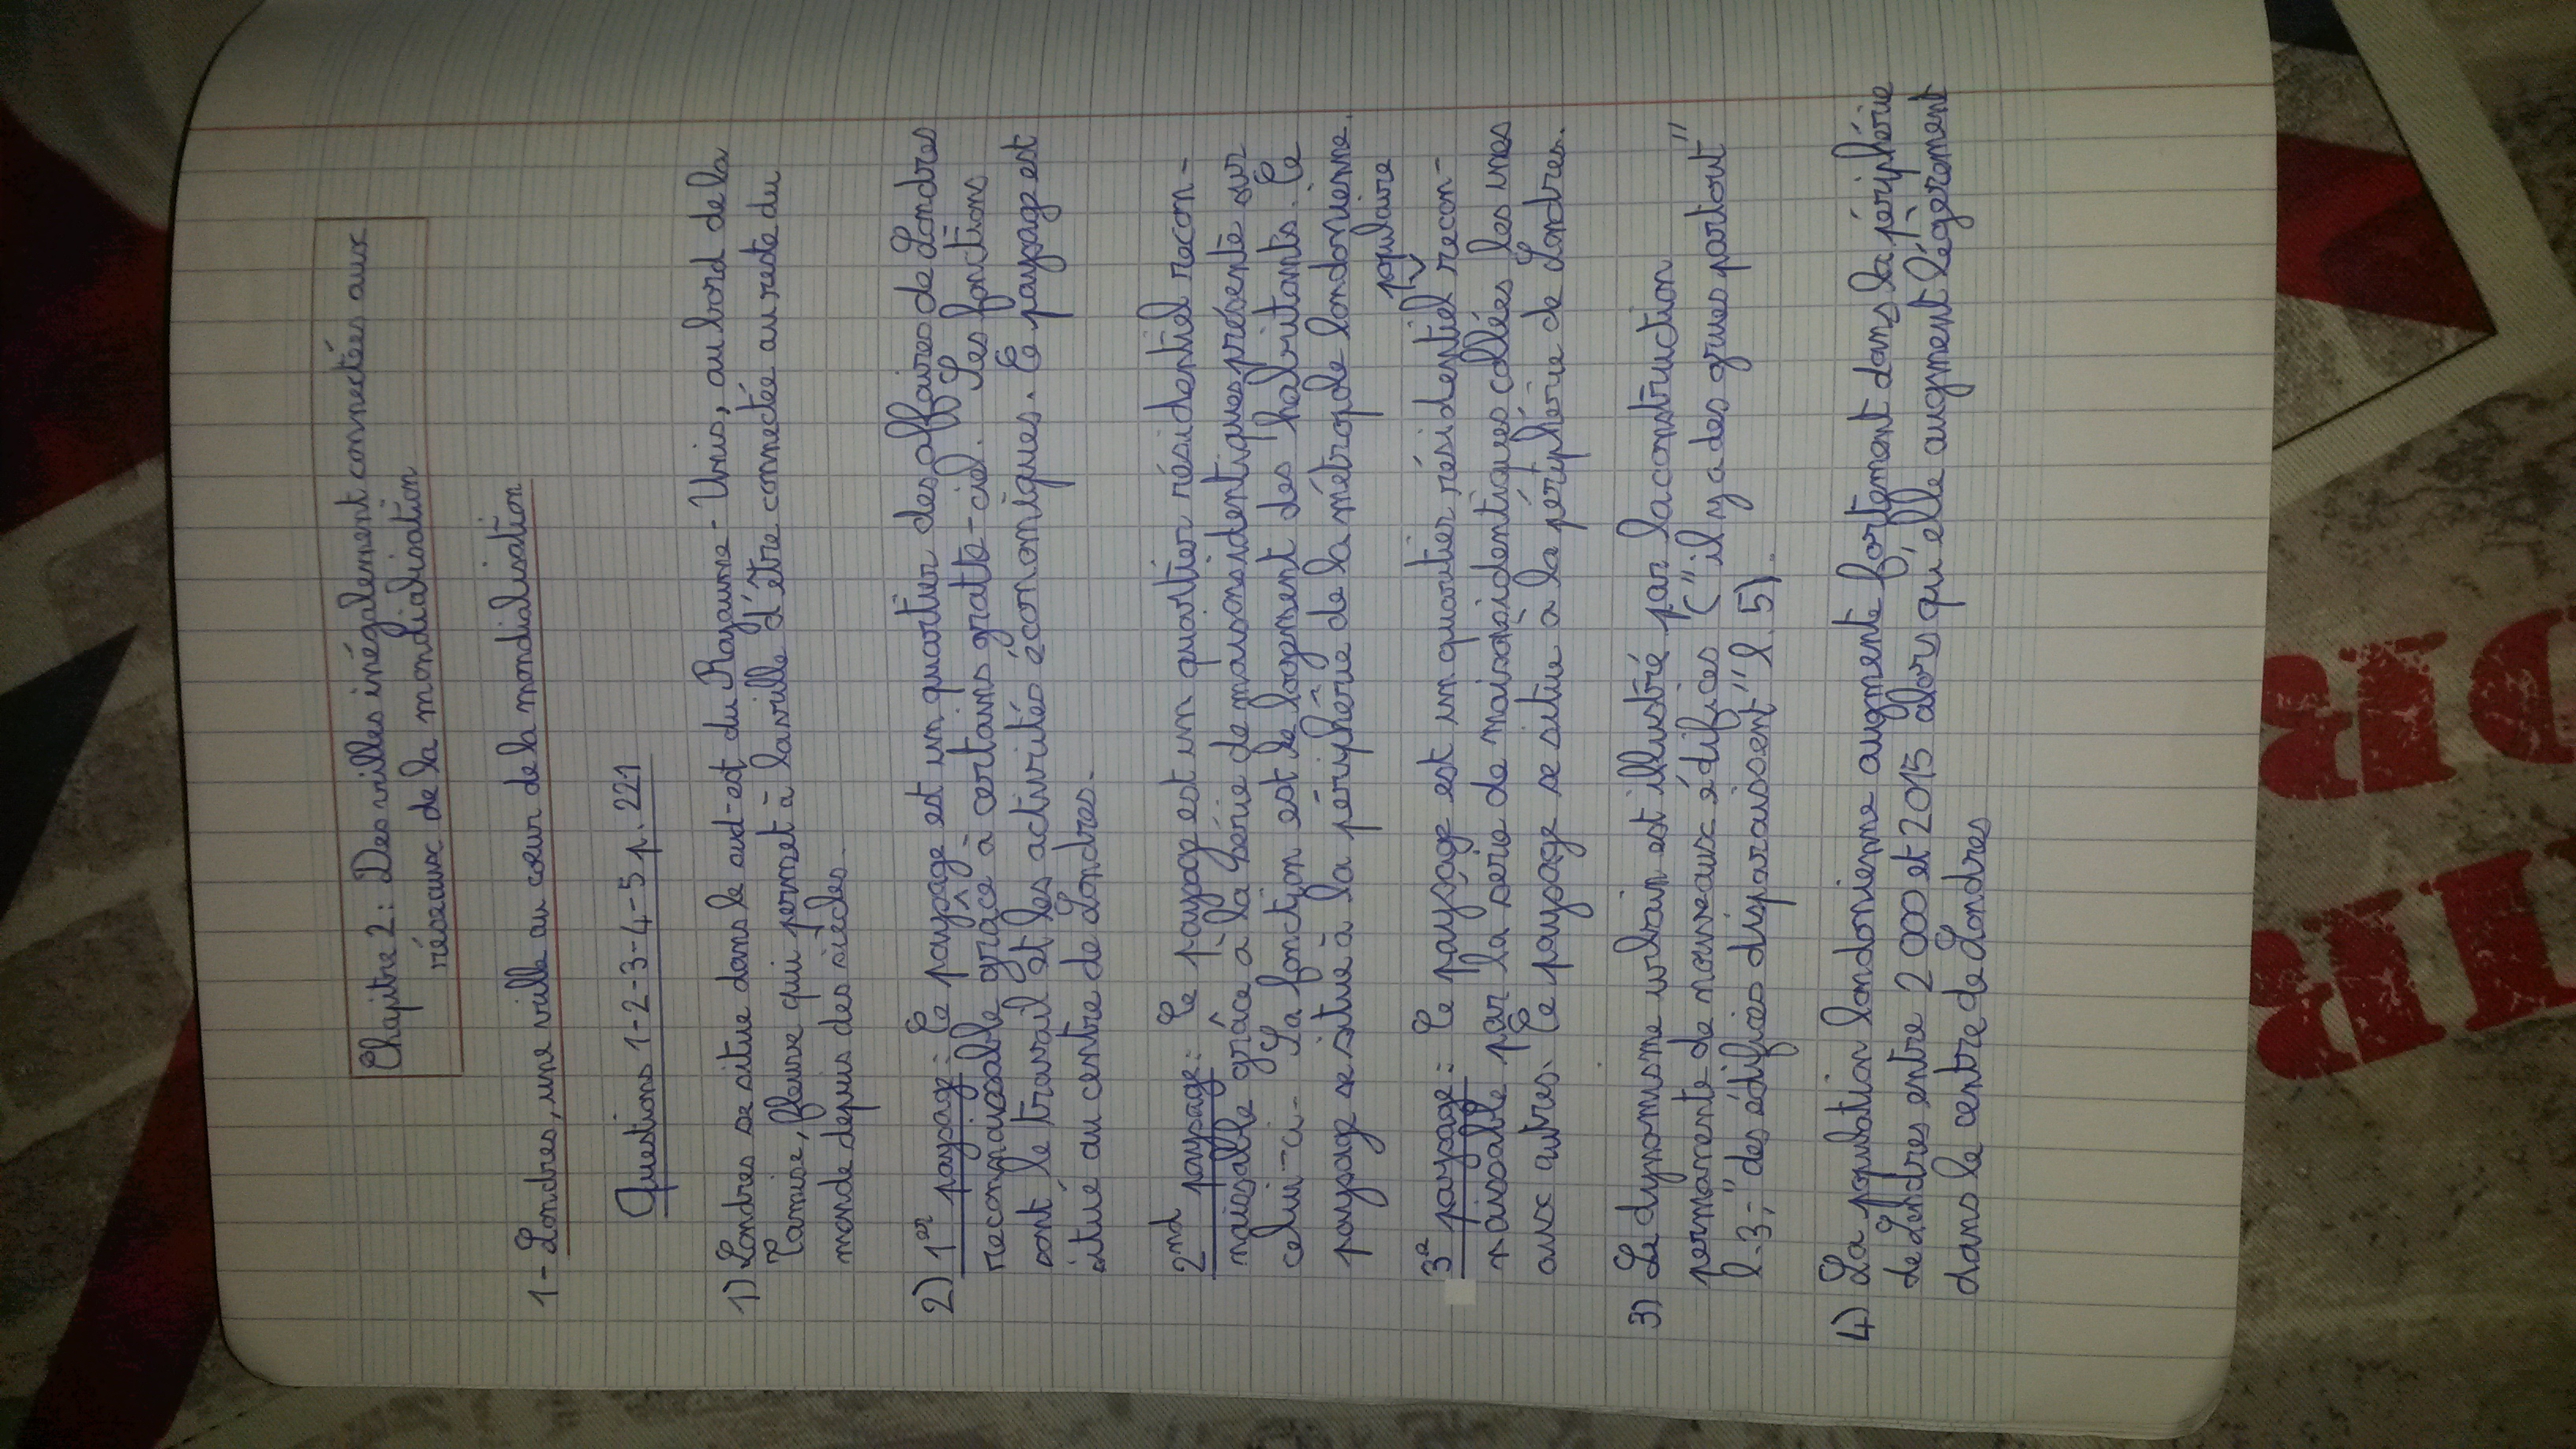 Chapitre 2 : Des villes inégalement connectées aux
réseaux de la mondialisation
1- Londres, une ville au cœur de la mondialisation
Questions 1-2-3-4-5 p. 221
1) Londres se situe dans le sud-est du Royaume-Unis, au bord de la
Tamise, fleuve qui permet à la ville d'être connectée au reste du
monde depuis des siècles.
2) 1er paysage : Ce paysage est un quartier des affaires de Londres
reconnaissable grâce à certains gratte-ciel. Les fonctions
sont le travail et les activités économiques. Ce paysage est
situé au centre de Londres.
2nd paysage : Ce paysage est un quartier résidentiel recon-
naissable grâce à la série de maisons identiques présente sur
celui-ci. La fonction est le logement des habitants. Ce
paysage se situe à la périphêrie de la métropole londonienne.
populaire
3e paysage : Ce paysage est un quartier résidentiel recon-
naissable par la série de maisons identiques collées les unes
aux autres. Ce paysage se situe à la périphérie de Londres.
3) Le dynamisme urbain est illustré par la construction
permanente de nouveaux édifices ("il y a des grues partout"
l.3, "des édifices disparaissent" l. 5).
4) La population londonienne augmente fortement dans la périphérie
de Londres entre 2 000 et 2015 alors qu'elle augment légèrement
dans le centre de Londres